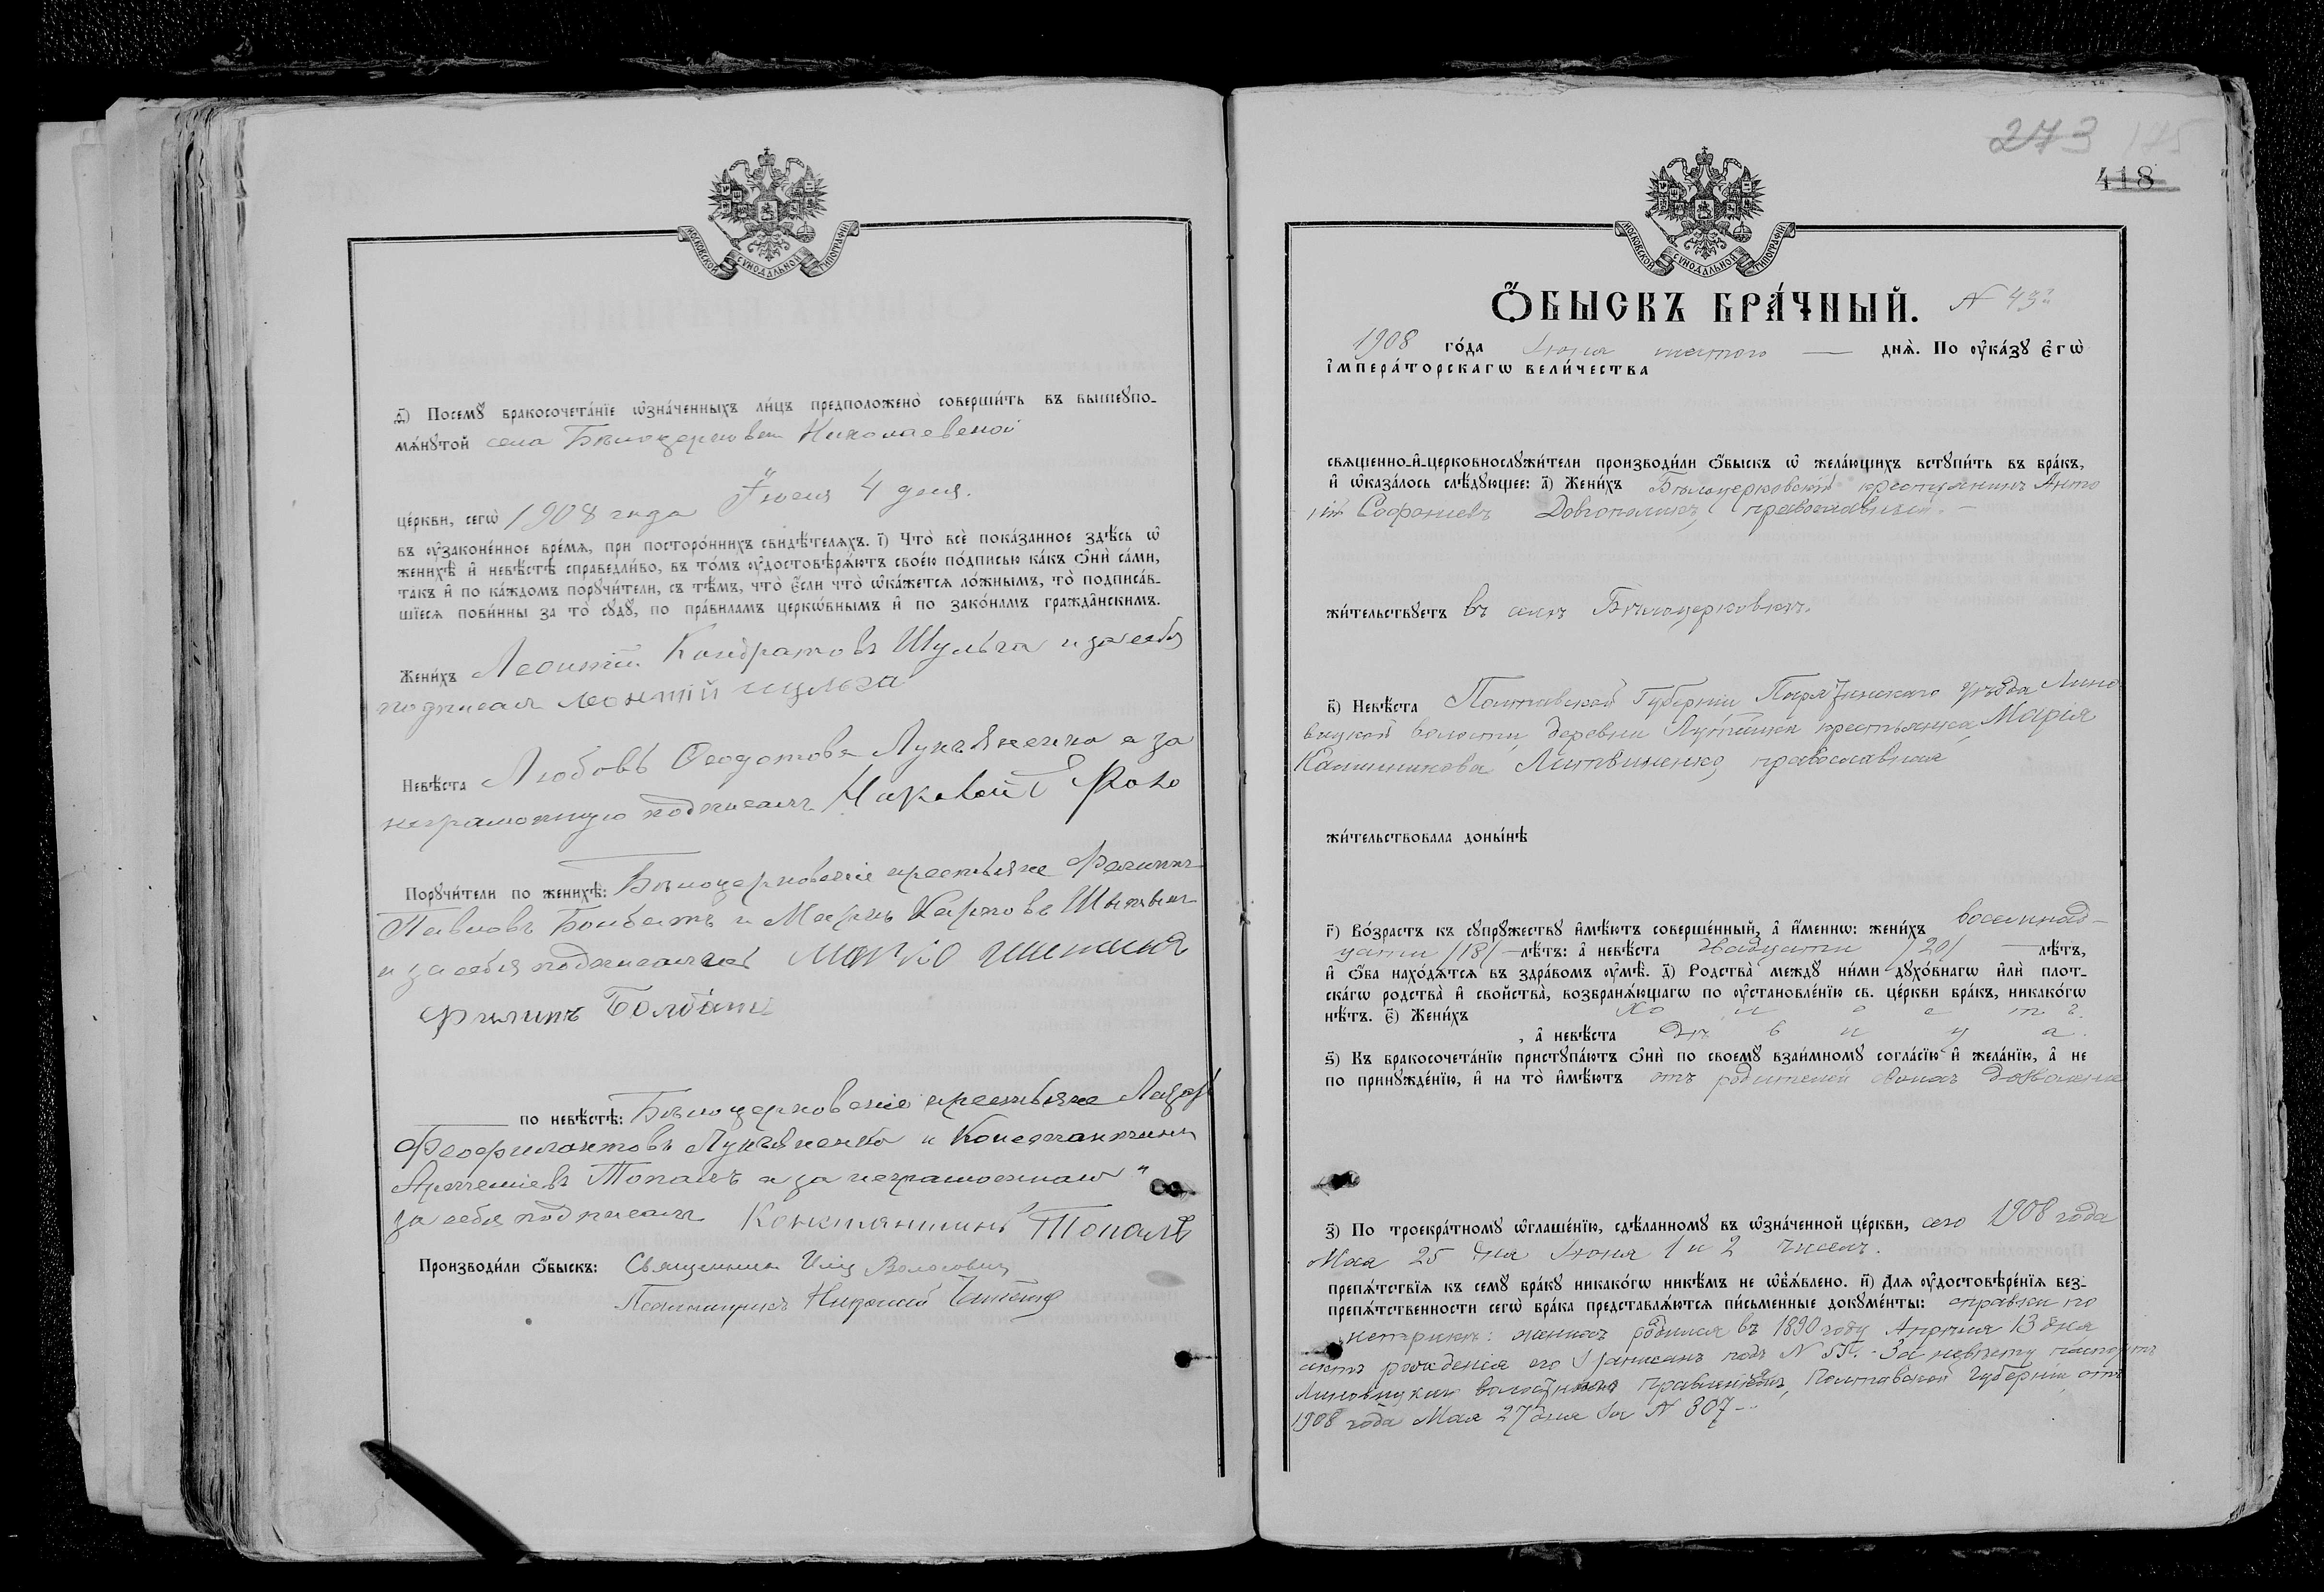 МОСКОВСКОЙ СѴНОДАЛЬНОЙ ТИПОГРАФІИ
ѳ҃) Посемꙋ̀ бракосочета́нїе ѡ҆зна́ченныхъ ли́цъ предположено̀ соверши́ть въ вышеꙋпо-
мѧ́нꙋтой села Бѣлоцерковки Николаевской
це́ркви, сегѡ̀ 1908 года Іюня 4 дня.
въ ᲂу҆законе́нное вре́мѧ, при посторо́ннихъ свидѣ́телѧхъ. і҃) Что̀ всѐ пока́занное здѣ́сь ѡ҆
женихѣ̀ и҆ невѣ́стѣ справедли́во, въ то́мъ ᲂу҆достовѣрѧ́ютъ свое́ю по́дписью ка́къ ѻ҆нѝ са́ми,
та́къ и҆ по ка́ждомъ порꙋчи́тели, съ тѣ́мъ, что̀ є҆́сли что̀ ѡ҆ка́жетсѧ ло́жнымъ, то̀ подписа́в-
шїесѧ пови́нны за то̀ сꙋдꙋ̀, по пра́виламъ церкѡ́внымъ и҆ по зако́намъ гражда̑нскимъ.
Жени́хъ Леонтій Кондратовъ Шульга и за себя
подписалъ леонтій шульга
Невѣ́ста Любовь Феодотова Лукьяненко а за
неграмотную подписалъ
Порꙋчи́тели по женихѣ̀: Бѣлоцерковскіе крестьяне Филиппъ
Павловъ Болбатъ и Марко Карповъ
и за себя подписался Марко
Филипъ Болбатъ
по невѣ́стѣ: Бѣлоцерковскіе крестьяне Лазарь
Феофилактовъ Лукьяненко и Константинъ
Артеміевъ Топалъ а за неграмотнаго и
за себя подписалъ Константинъ Топалъ
Производи́ли ѻ҆́быскъ: Священникъ Илія Волосович
Псаломщикъ
273 175
418
МОСКОВСКОЙ СѴНОДАЛЬНОЙ ТИПОГРАФІИ
Ѻ҆́БЫСКЪ БРА́ЧНЫЙ. N 43й
1908 го́да Іюня пятого днѧ̀. По ᲂу҆ка́зꙋ є҆гѡ̀
і҆мпера́торскагѡ вели́чества
свѧще́нно-и҆-церковнослꙋжи́тели производи́ли ѻ҆́быскъ ѡ҆ жела́ющихъ встꙋпи́ть въ бра́къ,
и҆ ѡ҆каза́лось слѣ́дꙋющее: а҃) Жени́хъ Бѣлоцерковскій крестьянинъ Анто
ній Софоніевъ Довгополикъ, православный.
жи́тельствꙋетъ въ селѣ Бѣлоцерковкѣ.
в҃) Невѣ́ста Полтавской Губерніи Пирятинскаго уѣзда Лино
вицкой волости, деревни крестьянка, Марія
Калинникова Литвиненко, православная
жи́тельствовала доны́нѣ
г҃) Во́зрастъ къ сꙋпрꙋ́жествꙋ и҆мѣ́ютъ соверше́нный, а҆ и҆́менно: жени́хъ восемнад-
цати /18/ лѣ́тъ: а҆ невѣ́ста двадцати /20/ лѣ́тъ,
и҆ ѻ҆́ба нахо́дѧтсѧ въ здра́вомъ ᲂу҆мѣ̀. д҃) Родства̀ междꙋ̀ ни́ми дꙋхо́внагѡ и҆лѝ плот-
ска́гѡ родства̀ и҆ сво́йства̀, возбранѧ́ющагѡ по ᲂу҆становле́нїю св. це́ркви бра́къ, никако́гѡ
нѣ́тъ. є҃) Жени́хъ холостъ.
, а҆ невѣ́ста дѣвица.
ѕ҃) Къ бракосочета́нїю пристꙋпа́ютъ ѻ҆нѝ по своемꙋ̀ взаи́мномꙋ согла́сїю и҆ жела́нїю, а҆ не
по принꙋжде́нїю, и҆ на то̀ и҆мѣ́ютъ отъ родителей своихъ дозволеніе
з҃) По троекра́тномꙋ ѡ҆глаше́нїю, сдѣ́ланномꙋ въ ѡ҆зна́ченной це́ркви, сего 1908 года
Мая 25 дня Іюня 1 и 2 чиселъ.
препѧ́тствїѧ къ семꙋ̀ бра́кꙋ никако́гѡ никѣ́мъ не ѡ҆б̾ѧ́влено. и҃) Длѧ ᲂу҆достовѣре́нїѧ без-
препѧ́тственности сегѡ̀ бра́ка представлѧ́ютсѧ пи́сьменные докꙋме́нты: справки по
метрикѣ: женихъ родился въ 1890 году Апрѣля 13 дня
актъ рожденія его записанъ подъ N 55. За невѣсту паспортъ
Линовицкимъ волостнымъ правленіемъ, Полтавской Губерніи, отъ
1908 года Мая 27 дня за N 307